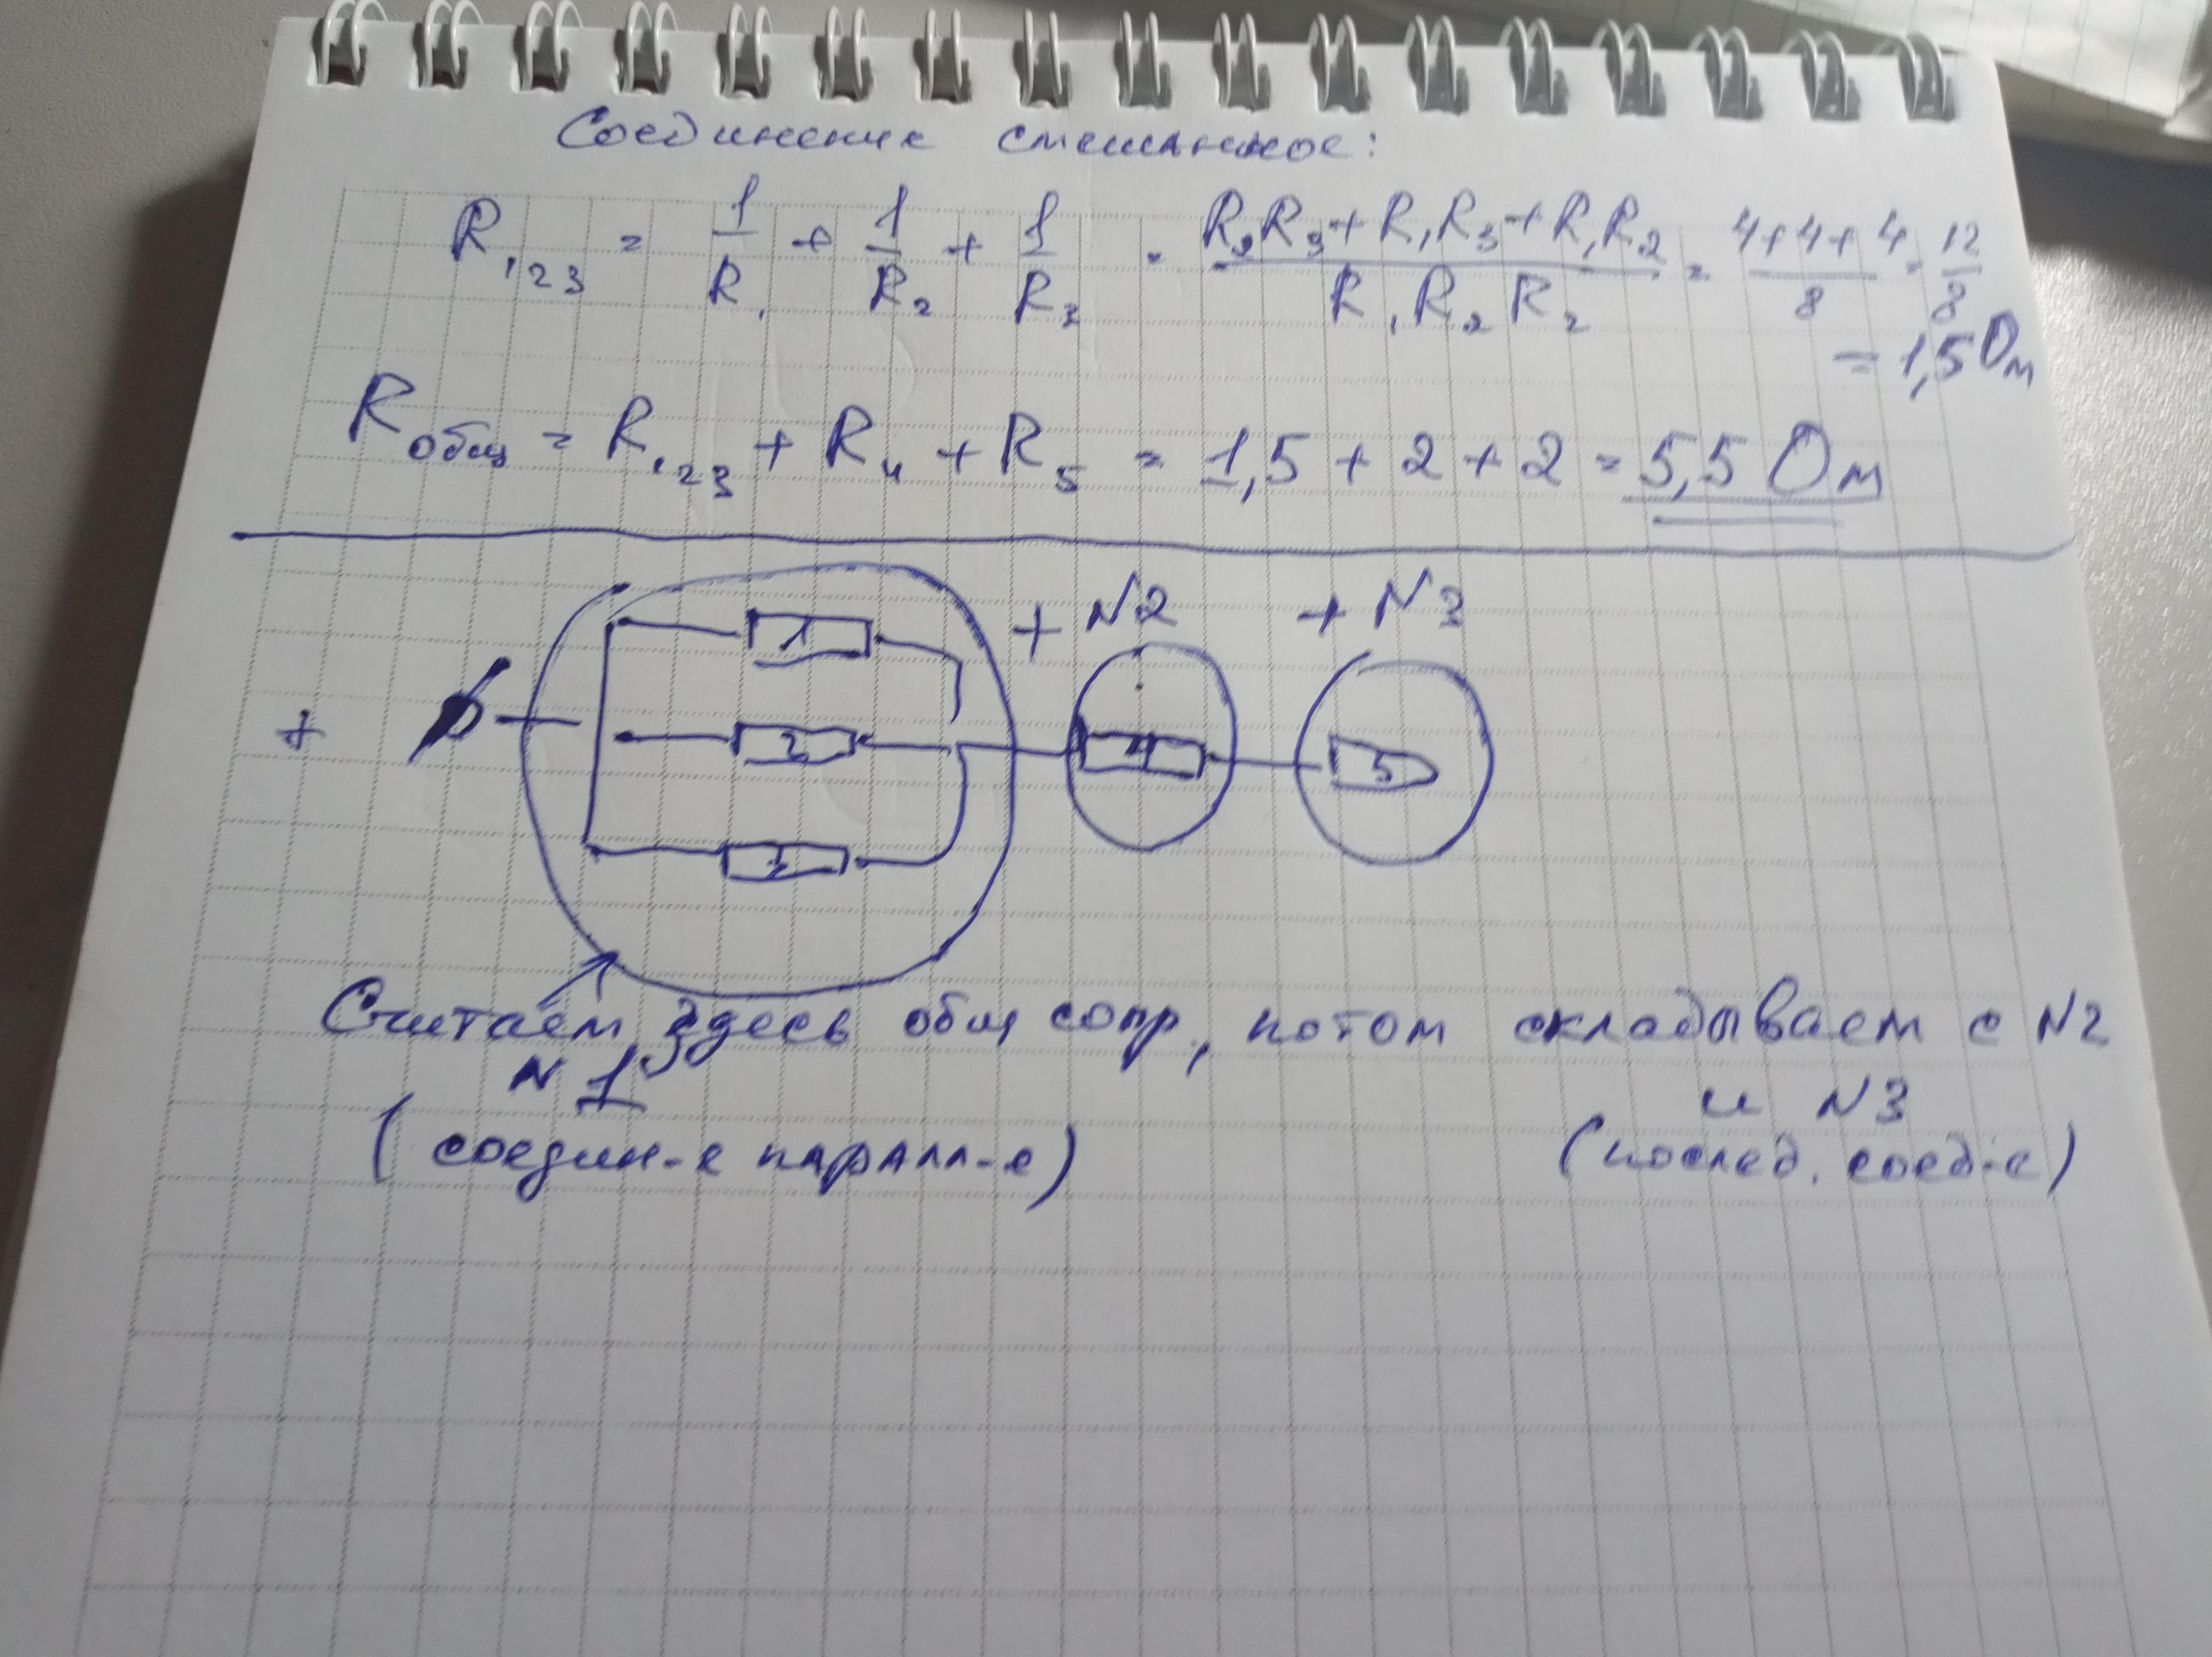 Соединение смешанное:
R₁₂₃ = 1/R₁ + 1/R₂ + 1/R₃ = (R₂R₃ + R₁R₃ + R₁R₂)/(R₁R₂R₂) = (4+4+4)/8 = 12/8
= 1,5 Ом
Rобщ = R₁₂₃ + R₄ + R₅ = 1,5 + 2 + 2 = 5,5 Ом
+ N2 + N3
1
+ 2 4 5
3
Считаем здесь общ сопр, потом складываем с N2
N 1 и N3
(соедин-е паралл-е) (послед. соед-е)